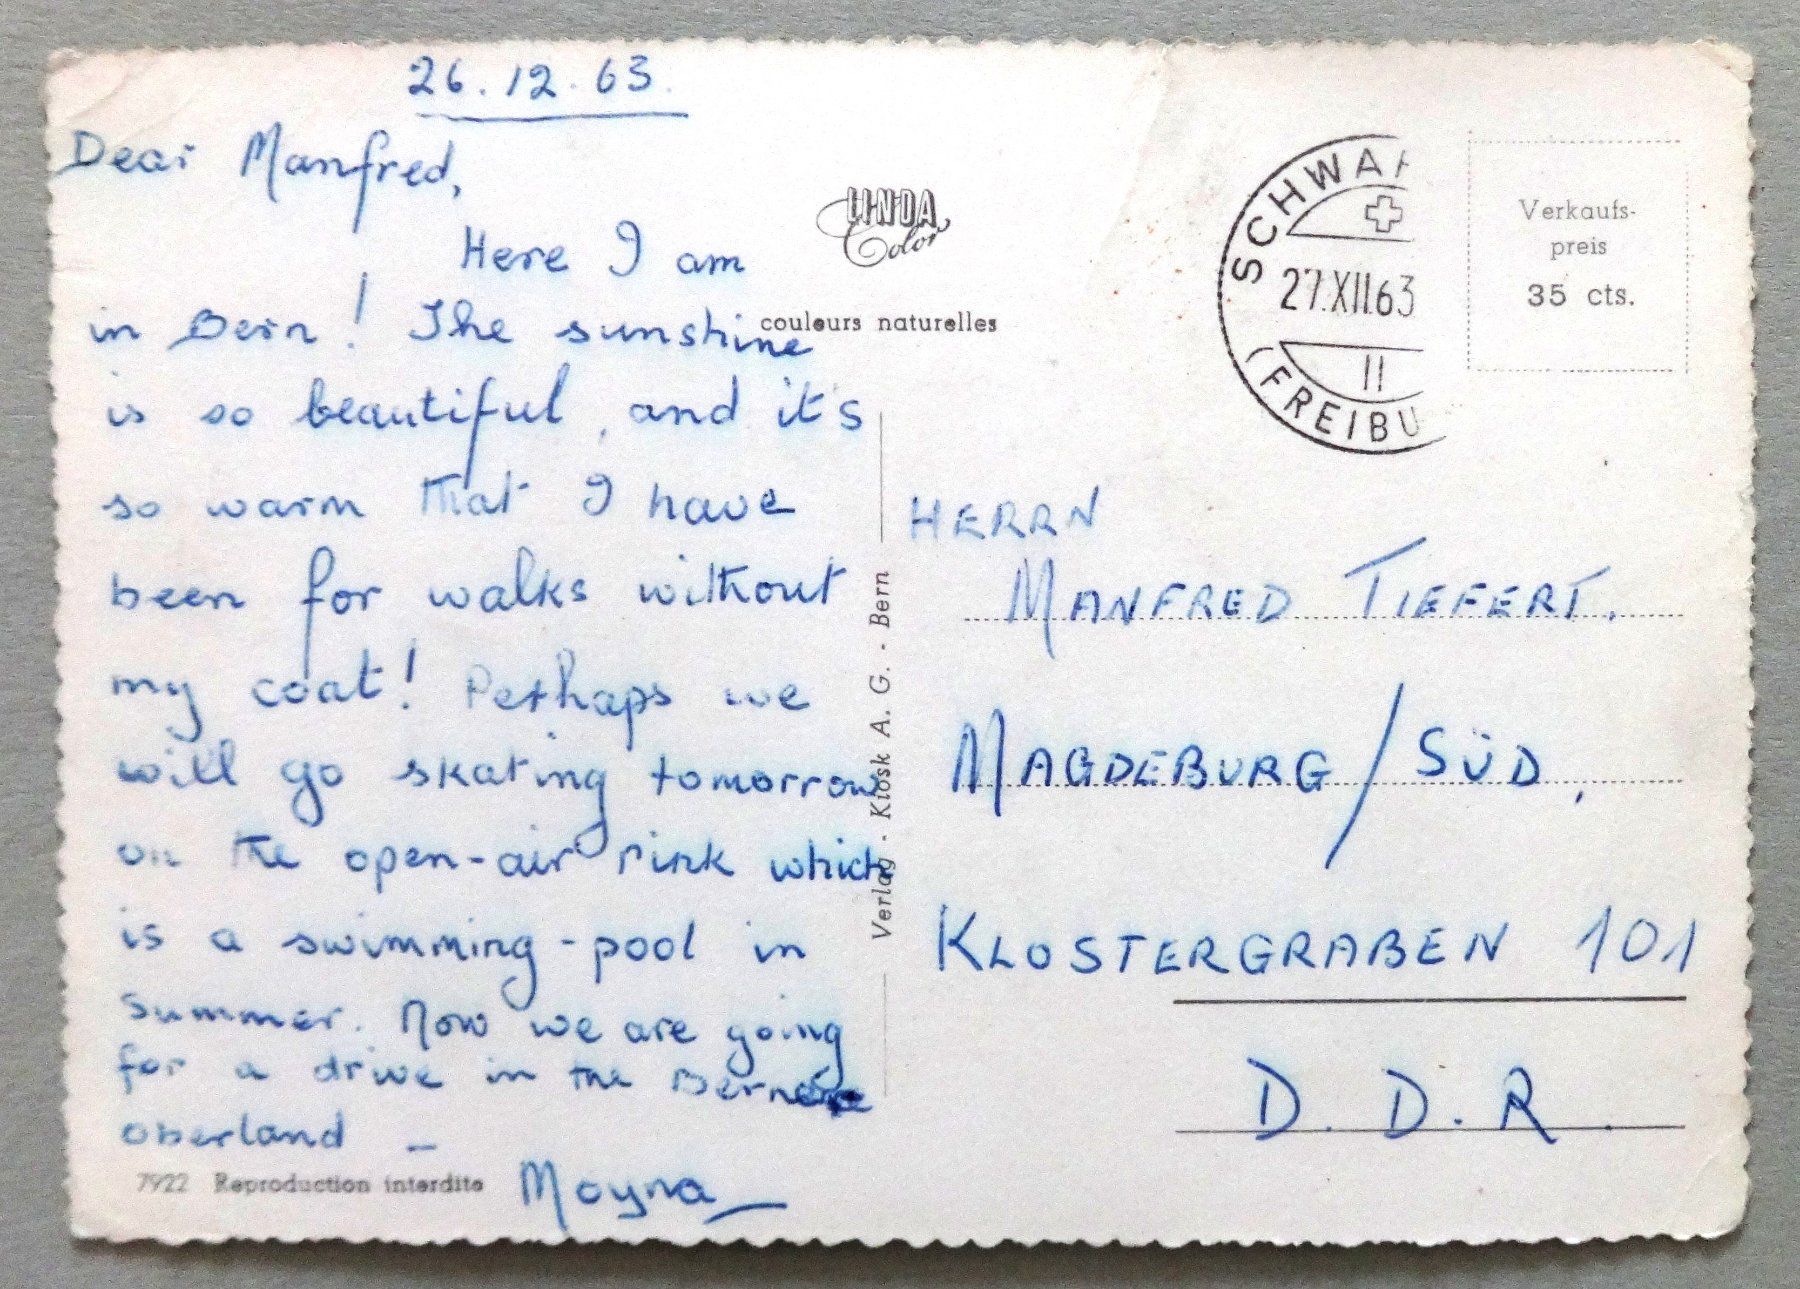 26.12.63.
Dear Manfred,
Here I am
in Bern! The sunshine
is so beautiful, and it's
so warm that I have
been for walks without
my coat! Perhaps we
will go skating tomorrow
on the open-air rink which
is a swimming-pool in
summer. Now we are going
for a drive in the Bernese
oberland -
Moyna
7922 Reproduction interdite
LINDA
Color
couleurs naturelles
Verlag - Kiosk A. G. - Bern
SCHWAR
27.XII.63
II
(FREIBU
Verkaufs-
preis
35 cts.
HERRN
MANFRED TIEFERT.
MAGDEBURG / SÜD,
KLOSTERGRABEN 101
D. D. R.